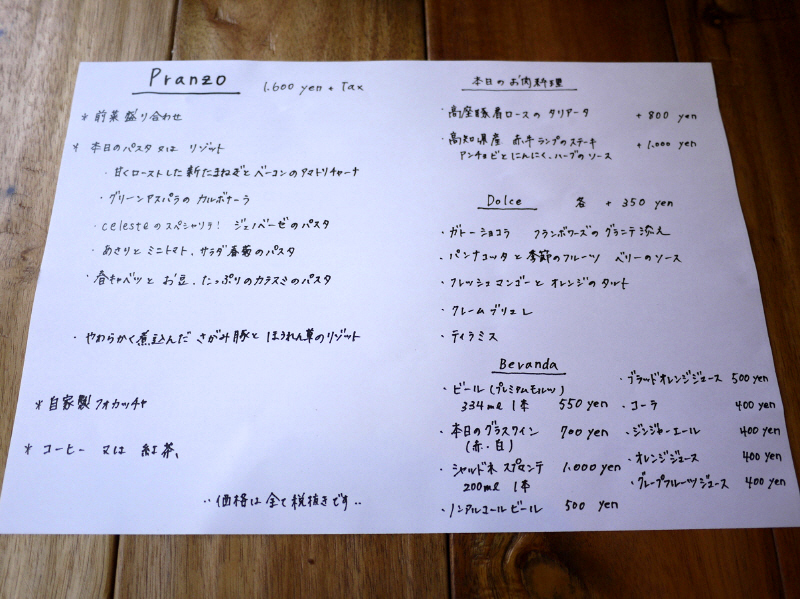 Pranzo 1.600 yen + Tax
* 前菜盛り合わせ
* 本日のパスタ 又は リゾット
・甘くローストした新たまねぎとベーコンのアマトリチャーナ
・グリーンアスパラの カルボナーラ
・celesteのスペシャリテ! ジェノベーゼのパスタ
・あさりとミニトマト、サラダ春菊のパスタ
・春キャベツと お豆、たっぷりのカラスミのパスタ
・やわらかく煮込んだ さがみ豚と ほうれん草のリゾット
* 自家製フォカッチャ
* コーヒー 又は 紅茶、
・・価格は全て税抜きです・・
本日のお肉料理
・高座豚肩ロースの タリアータ + 800 yen
・高知県産 赤牛ランプのステーキ + 1.000 yen
アンチョビとにんにく、ハーブのソース
Dolce 各 + 350 yen
・ガトーショコラ フランボワーズのグラニテ添え
・パンナコッタと季節のフルーツ ベリーのソース
・フレッシュマンゴーと オレンジのタルト
・クレームブリュレ
・ティラミス
Bevanda
・ビール (プレミアムモルツ)
334ml 1本 550 yen
・本日のグラスワイン 700 yen
(赤・白)
・シャルドネ スプマンテ 1.000 yen
200ml 1本
・ノンアルコールビール 500 yen
・ブラッドオレンジジュース 500 yen
・コーラ 400 yen
・ジンジャーエール 400 yen
・オレンジジュース 400 yen
・グレープフルーツジュース 400 yen